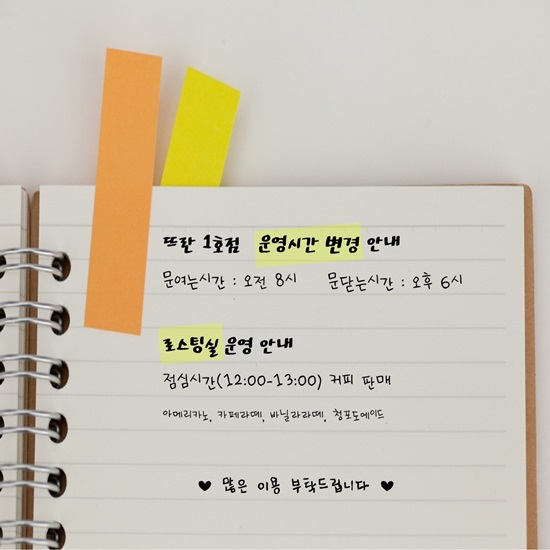 뜨란 1호점 운영시간 변경 안내
문여는시간 : 오전 8시 문닫는시간 : 오후 6시
로스팅실 운영 안내
점심시간(12:00-13:00) 커피 판매
아메리카노, 카페라떼, 바닐라라떼, 청포도에이드
♥ 많은 이용 부탁드립니다 ♥